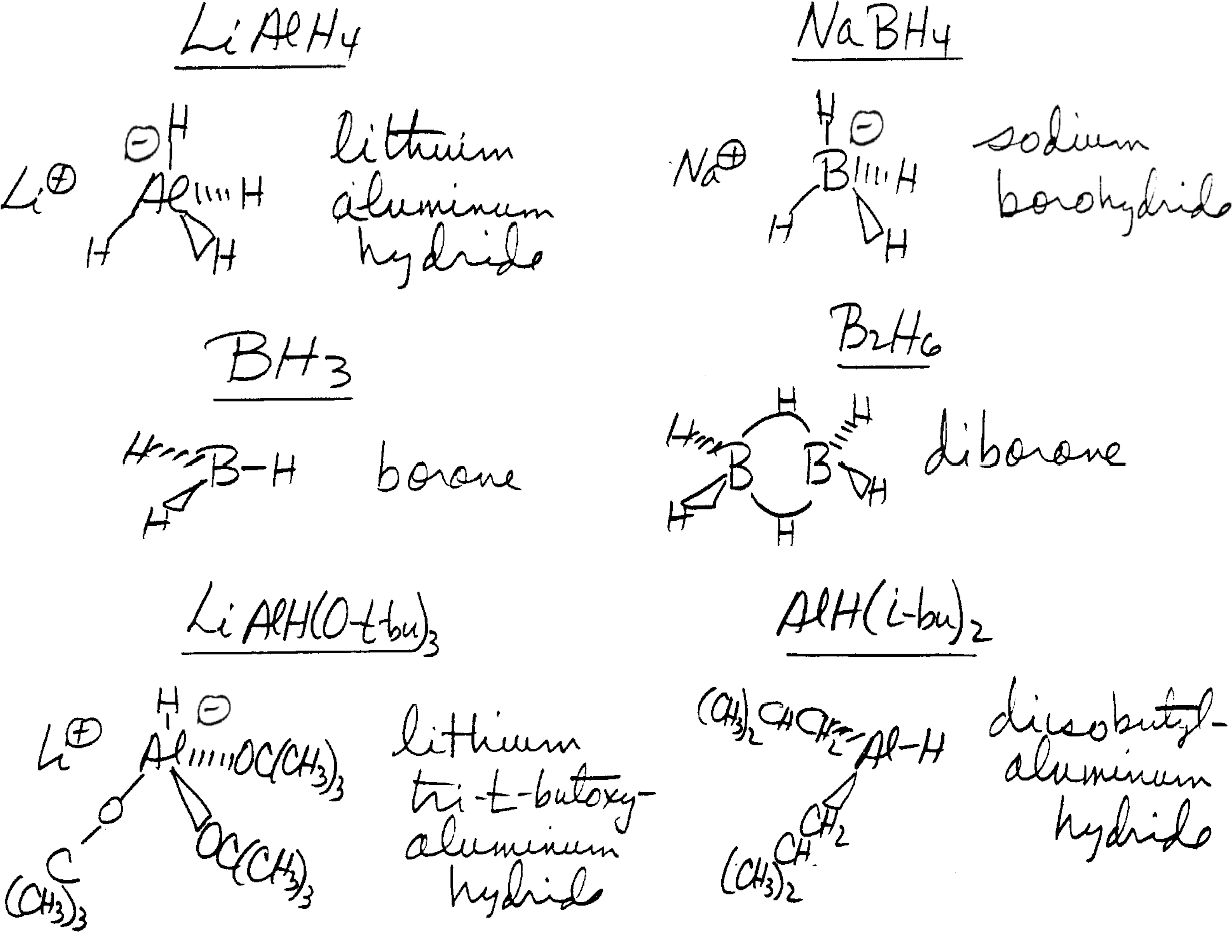 LiAlH4
Li⊕ ⊖ H Al H H H
lithium
aluminum
hydride
NaBH4
Na⊕ H ⊖ B H H H
sodium
borohydride
BH3
H B-H H
borane
B2H6
H H H B B H H H
diborane
LiAlH(O-t-bu)3
Li⊕ H ⊖ Al OC(CH3)3 O OC(CH3)3 C (CH3)3
lithium
tri-t-butoxy-
aluminum
hydride
AlH(i-bu)2
(CH3)2CHCH2 Al-H CH2 CH (CH3)2
diisobutyl-
aluminum
hydride